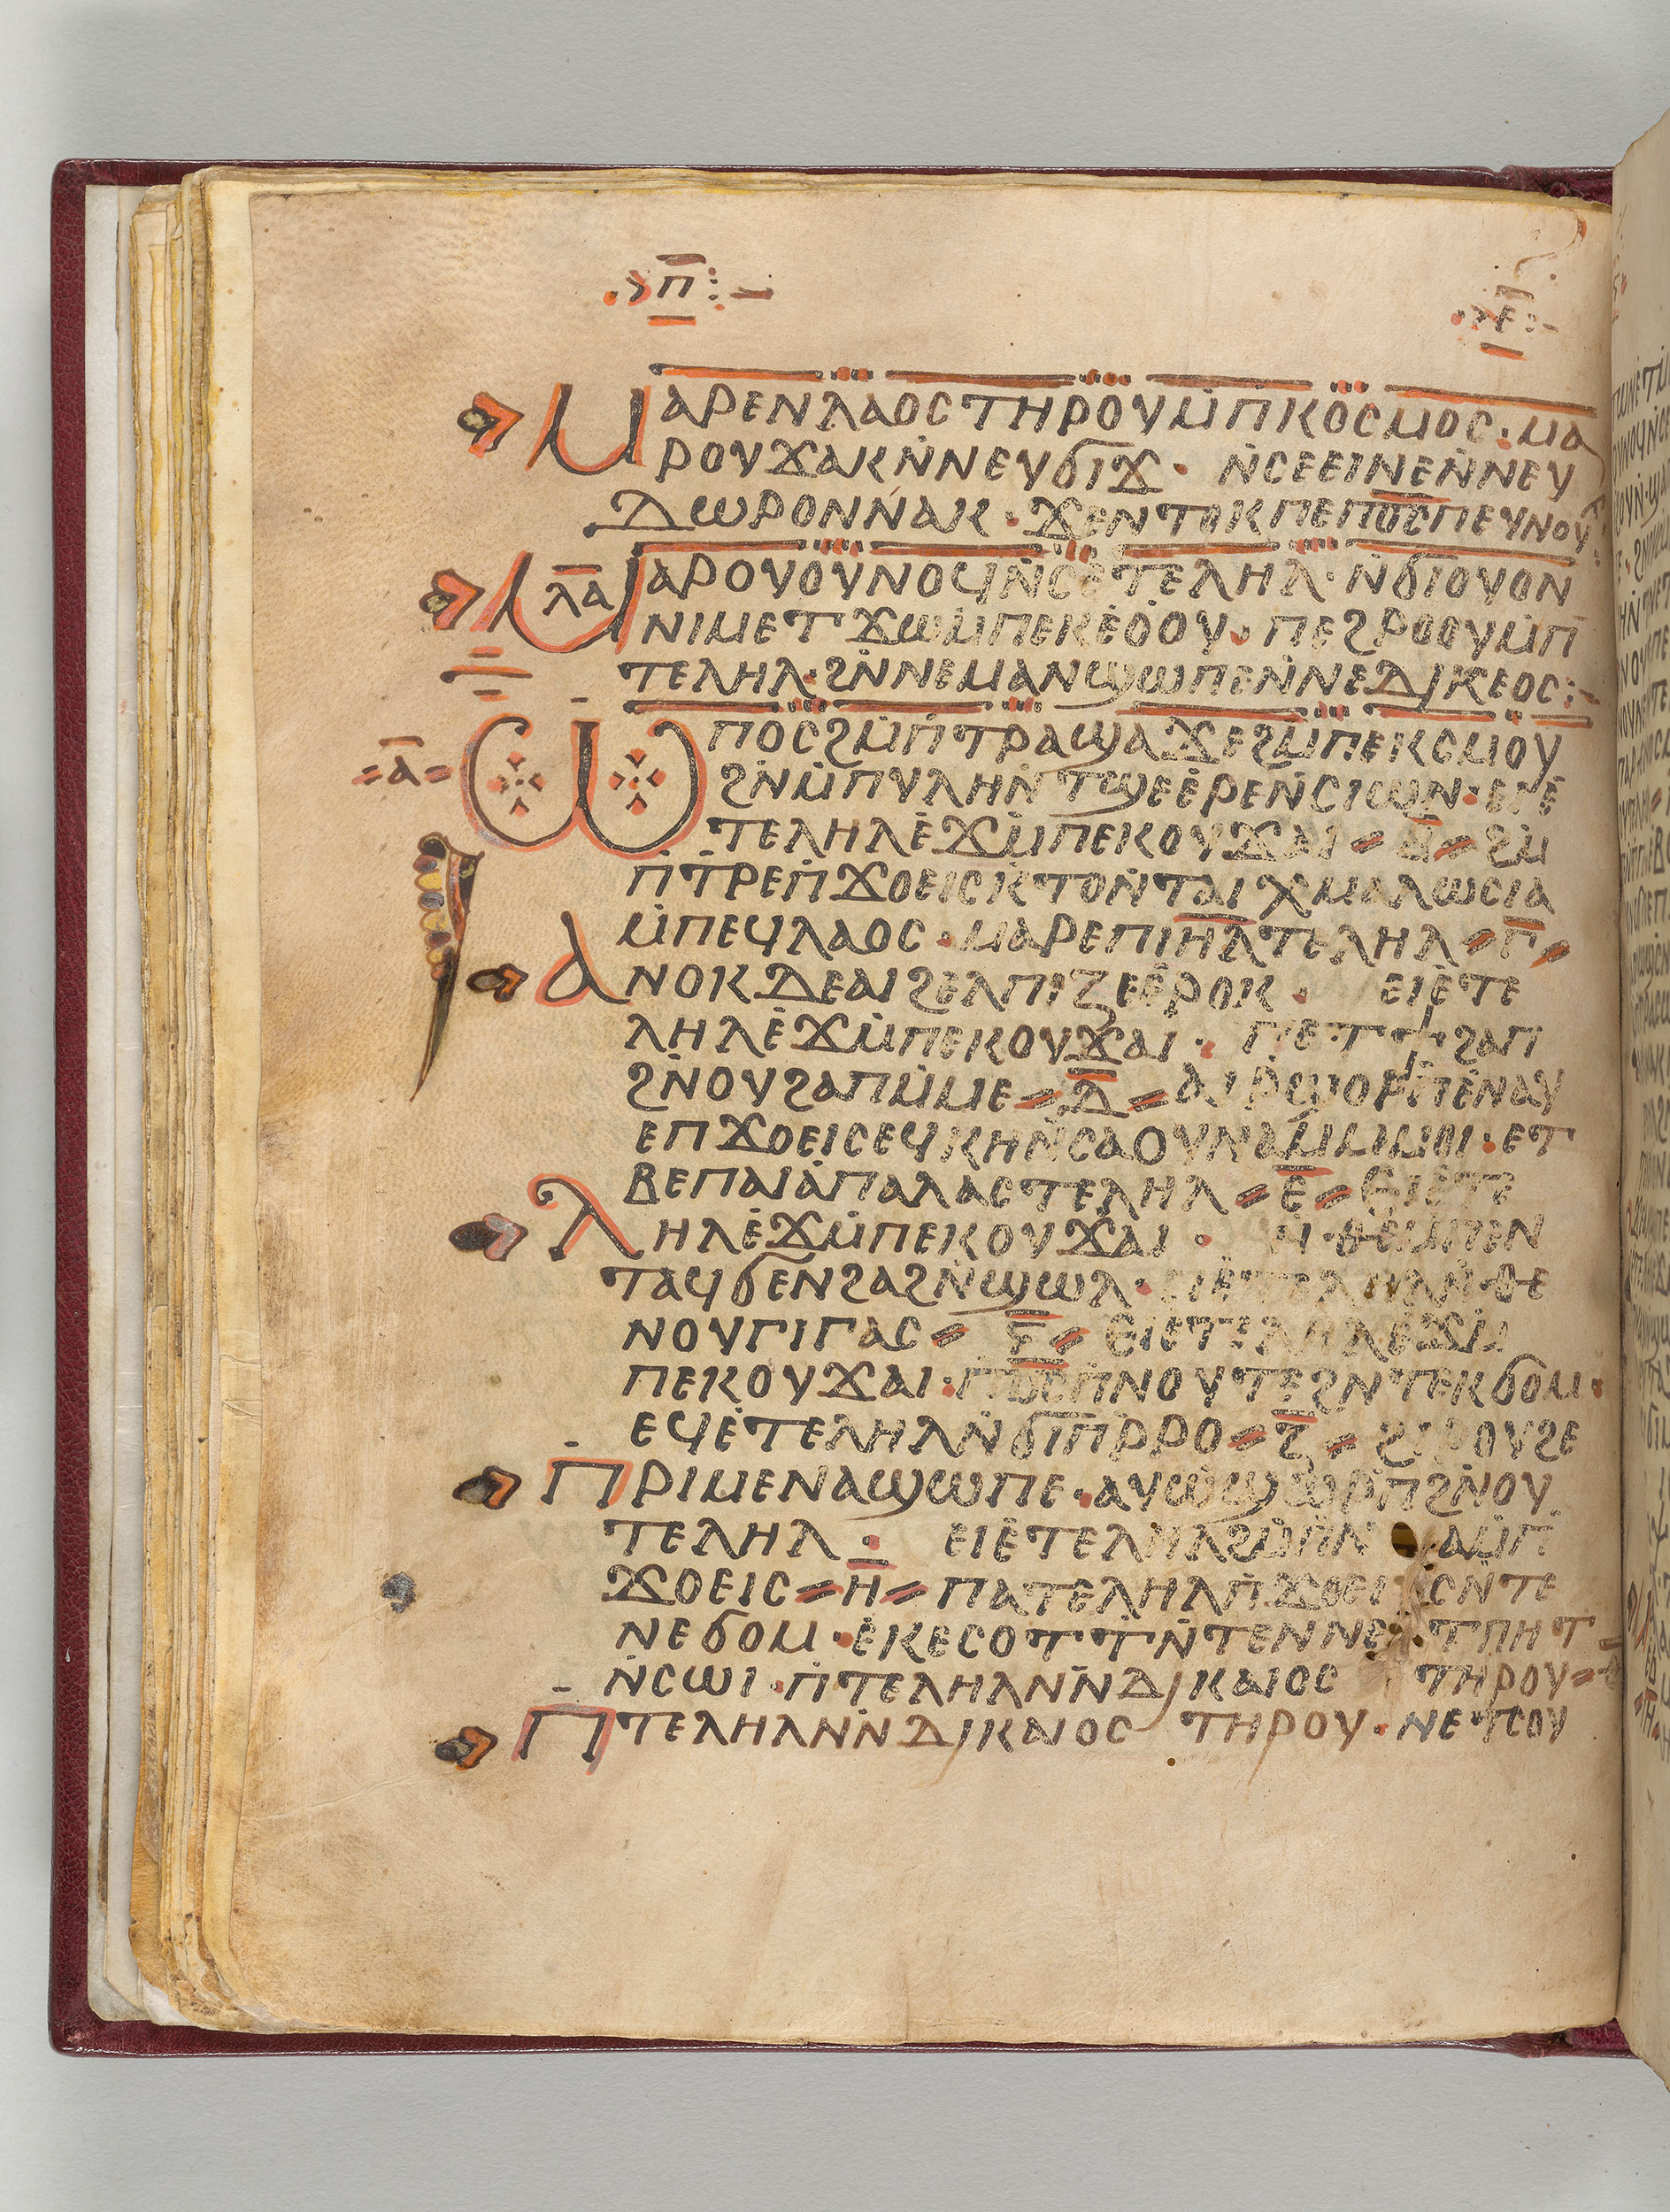 ⲡ̅ ⲉ̅
ⲙⲁⲣⲉⲛⲗⲁⲟⲥⲧⲏⲣⲟⲩⲙ̇ⲡⲕⲟⲥⲙⲟⲥ·ⲙⲁ
ⲣⲟⲩϫⲁⲕⲛ̇ⲛⲉⲩϭⲓϫ· ⲛ̇ⲥⲉⲉⲓⲛⲉⲛ̇ⲛⲉⲩ
ⲇⲱⲣⲟⲛⲛⲁⲕ·ϫⲉⲛⲧⲟⲕⲡⲉⲡϭ̅ⲥ̅ⲡⲉⲩⲛⲟⲩ
ⲗ̅ⲁ̅ ⲙⲁⲣⲟⲩⲟⲩⲛⲟϥⲛ̇ⲥⲉⲧⲉⲗⲏⲗ·ⲛ̇ϭⲓⲟⲩⲟⲛ
ⲛⲓⲙⲉⲧϫⲱⲙ̇ⲡⲉⲕⲉ̇ⲟ̇ⲟⲩ·ⲡⲉϩⲣⲟⲟⲩⲙ̇ⲡ
ⲧⲉⲗⲏⲗ·ϩⲛ̇ⲛⲉⲙⲁⲛϣⲱⲡⲉⲛ̇ⲛⲉⲇⲓⲕⲉⲟⲥ:-
⸗ⲁ̅⸗ ⲱⲡⲟ̅ⲥ̅ϩⲙ̇ⲡ̇ⲧⲣⲁϣⲁϫⲉϩⲙ̇ⲡⲉⲕⲥⲙⲟⲩ
ϩⲛ̇ⲙ̇ⲡⲩⲗⲏⲛ̇ⲧϣⲉⲉ̇ⲣⲉⲛ̇ⲥⲓⲱⲛ·ⲉⲓⲉ̇
ⲧⲉⲗⲏⲗⲉ̇ϫⲙ̇ⲡⲉⲕⲟⲩϫⲁⲓ⸗ⲃ̅⸗ϩⲙ̇
ⲡ̇ⲧⲣⲉⲡ̇ϫⲟⲉⲓⲥⲕ̇ⲧⲟⲛ̇ⲧⲁⲓⲭⲙⲁⲗⲱⲥⲓⲁ
ⲙ̇ⲡⲉϥⲗⲁⲟⲥ·ⲙⲁⲣⲉⲡⲓ̅ⲏ̅ⲗ̅ⲧⲉⲗⲏⲗ⸗ⲅ̅⸗
ⲁⲛⲟⲕⲇⲉⲁⲓϩⲉⲗⲡⲓⲍⲉⲉ̇ⲣⲟⲕ· ⲉⲓⲉ̇ⲧⲉ
ⲗⲏⲗⲉ̇ϫⲙ̇ⲡⲉⲕⲟⲩϫⲁⲓ· ⲡⲉⲧϯϩⲁⲡ
ϩⲛ̇ⲟⲩϩⲁⲡⲙ̇ⲙⲉ⸗ⲇ̅⸗ⲁⲓⲣ̇ϣⲟⲣⲡ̇ⲉ̇ⲛⲁⲩ
ⲉⲡϫⲟⲉⲓⲥⲉϥⲕⲏⲛ̇ⲥⲁⲟⲩⲛⲁⲙⲙ̇ⲙⲟⲓ·ⲉⲧ
ⲃⲉⲡⲁⲓⲁ̇ⲡⲁⲗⲁⲥⲧⲉⲗⲏⲗ⸗ⲉ̅⸗ⲉⲓⲉ̇ⲧⲉ
ⲗⲏⲗⲉ̇ϫⲙ̇ⲡⲉⲕⲟⲩϫⲁⲓ· ⲛ̇ⲑⲉⲙ̇ⲡⲉⲛ
ⲧⲁϥϭⲉⲛϩⲁϩⲛ̇ϣⲱⲗ·ⲉⲓⲉ̇ⲧⲉⲗⲏⲗⲛ̇ⲑⲉ
ⲛⲟⲩⲅⲓⲅⲁⲥ⸗ ⲋ̅⸗ⲉⲓⲉ̇ⲧⲉⲗⲏⲗⲉ̇ϫⲙ̇
ⲡⲉⲕⲟⲩϫⲁⲓ·ⲡϭ̅ⲥ̅ⲡ̇ⲛⲟⲩⲧⲉϩⲛ̇ⲧⲉⲕϭⲟⲙ·
ⲉϥⲉ̇ⲧⲉⲗⲏⲗⲛ̇ϭⲓⲡ̇ⲣ̇ⲣⲟ⸗ⲍ̅⸗ϩⲓⲣⲟⲩϩⲉ
ⲡ̇ⲣⲓⲙⲉⲛⲁϣⲱⲡⲉ·ⲁⲩⲱϣⲱⲣⲡ̇ϩⲛ̇ⲟⲩ
ⲧⲉⲗⲏⲗ· ⲉⲓⲉ̇ⲧⲉⲗⲏⲗϩⲙ̇ⲡ̇ⲛ ⲁⲙ̇ⲡ
ϫⲟⲉⲓⲥ⸗ⲏ̅⸗ⲡⲁⲧⲉⲗⲏⲗⲡ̇ϫⲟⲉⲓⲥⲛ̇ⲧⲉ
ⲛⲉϭⲟⲙ·ⲉ̇ⲕⲉⲥⲟⲧⲧ̇ⲛ̇ⲧⲉⲛⲛⲉⲧⲡⲏⲧ
ⲛ̇ⲥⲱⲓ·ⲡ̇ⲧⲉⲗⲏⲗⲛ̇ⲛ̇ⲇⲓⲕⲁⲓⲟⲥ ⲧⲏⲣⲟⲩ⸗ⲑ̅
ⲡ̇ⲧⲉⲗⲏⲗⲛ̇ⲛ̇ⲇⲓⲕⲁⲓⲟⲥ ⲧⲏⲣⲟⲩ·ⲛⲉⲧⲥⲟⲩ